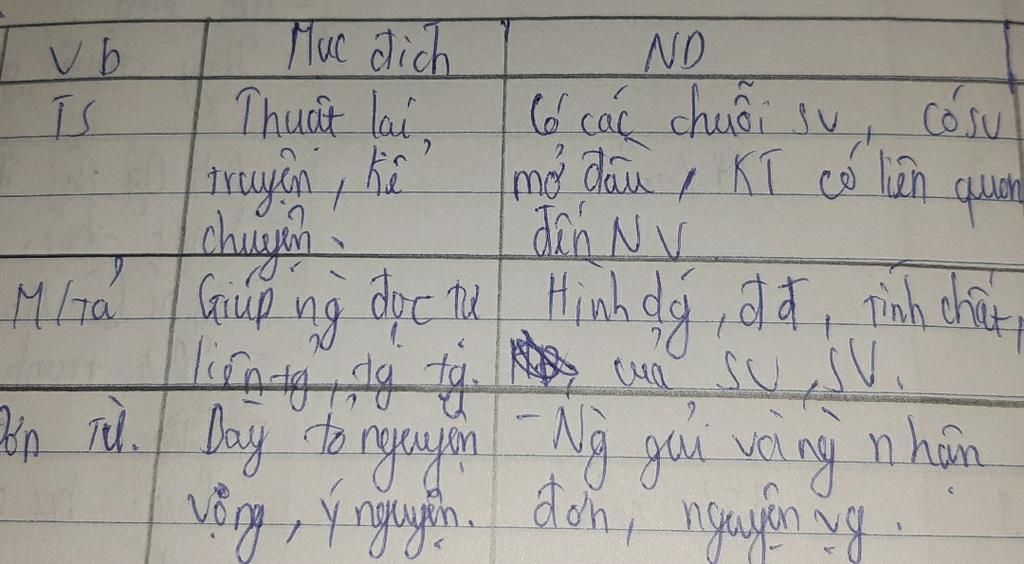 Vb Mục đích ND
TS Thuật lại, Có các chuỗi sv, có sv
truyện, kể mở đầu, KT có liên quan
chuyện. đến NV
M/tả Giúp ng đọc tự Hình dg, đđ, tính chất,
liên tg, tg tg. của SV, SV.
Đơn Từ. Bày tỏ nguyện - Ng gửi và ng nhận
vọng, ý nguyện. đơn, nguyện vg.